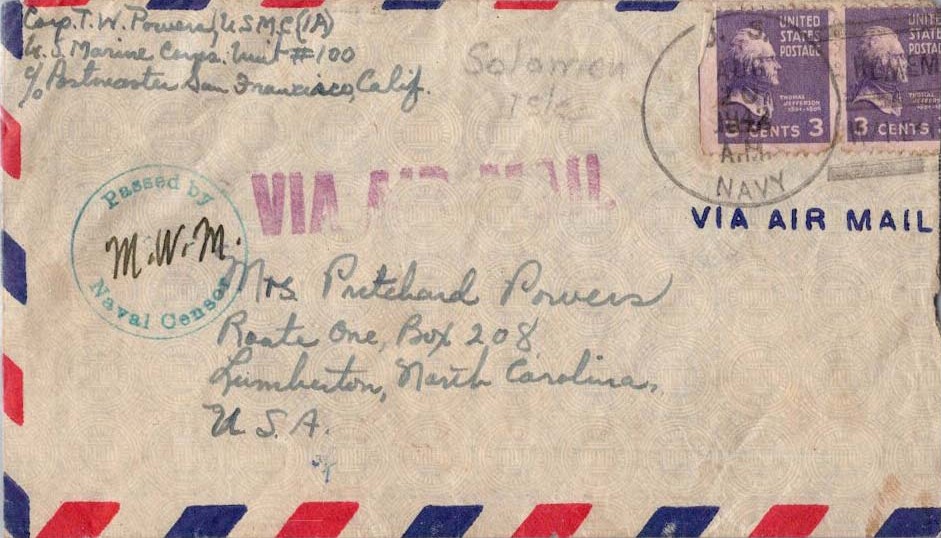 Corp. T. W. Powers, U.S.M.C. (1A)
U.S. Marine Corps. Unit #100
c/o Postmaster San Francisco, Calif.
Solomon
Isls
UNITED
STATES
POSTAGE
THOMAS
JEFFERSON
1801-1809
3 CENTS 3
UNITED
STATES
POSTAGE
THOMAS
JEFFERSON
3 CENTS
U. S.
AUG
A.M.
NAVY
VIA AIR MAIL
VIA AIR MAIL
Passed by
M.W.M.
Naval Censor
Mrs. Pritchard Powers
Route One, Box 208
Lumberton, North Carolina,
U.S.A.